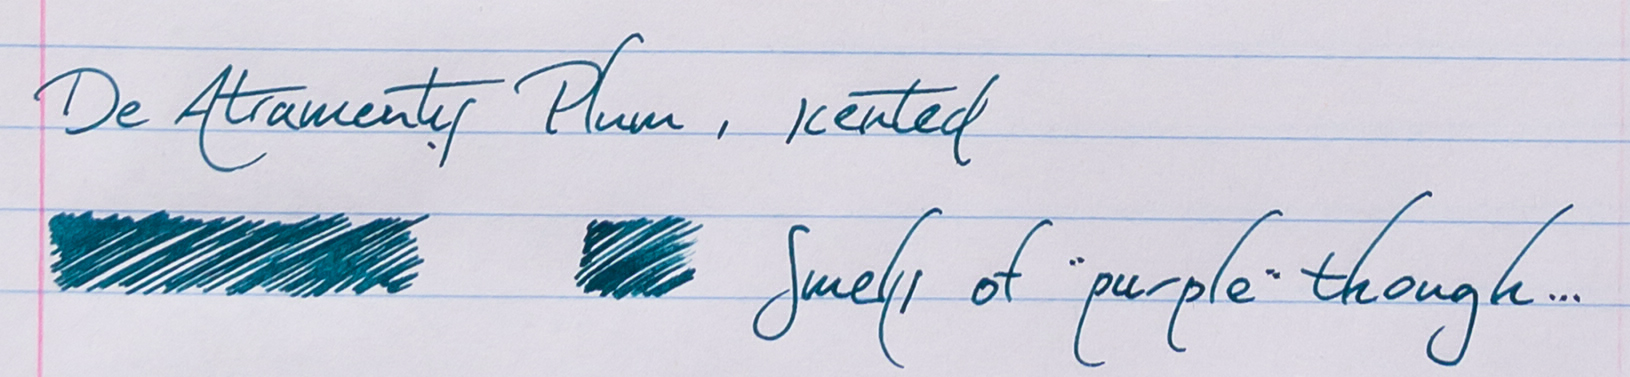 De Atramentis Plum, scented
Smells of "purple" though...